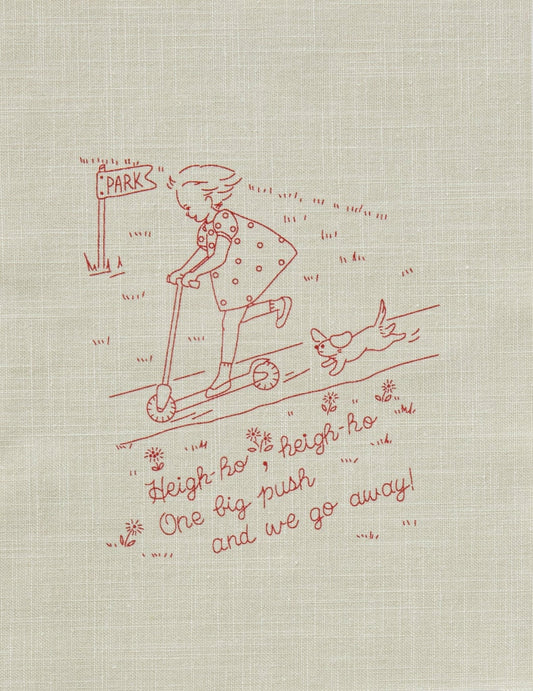 PARK
Heigh-ho, heigh-ho
One big push
and we go away!